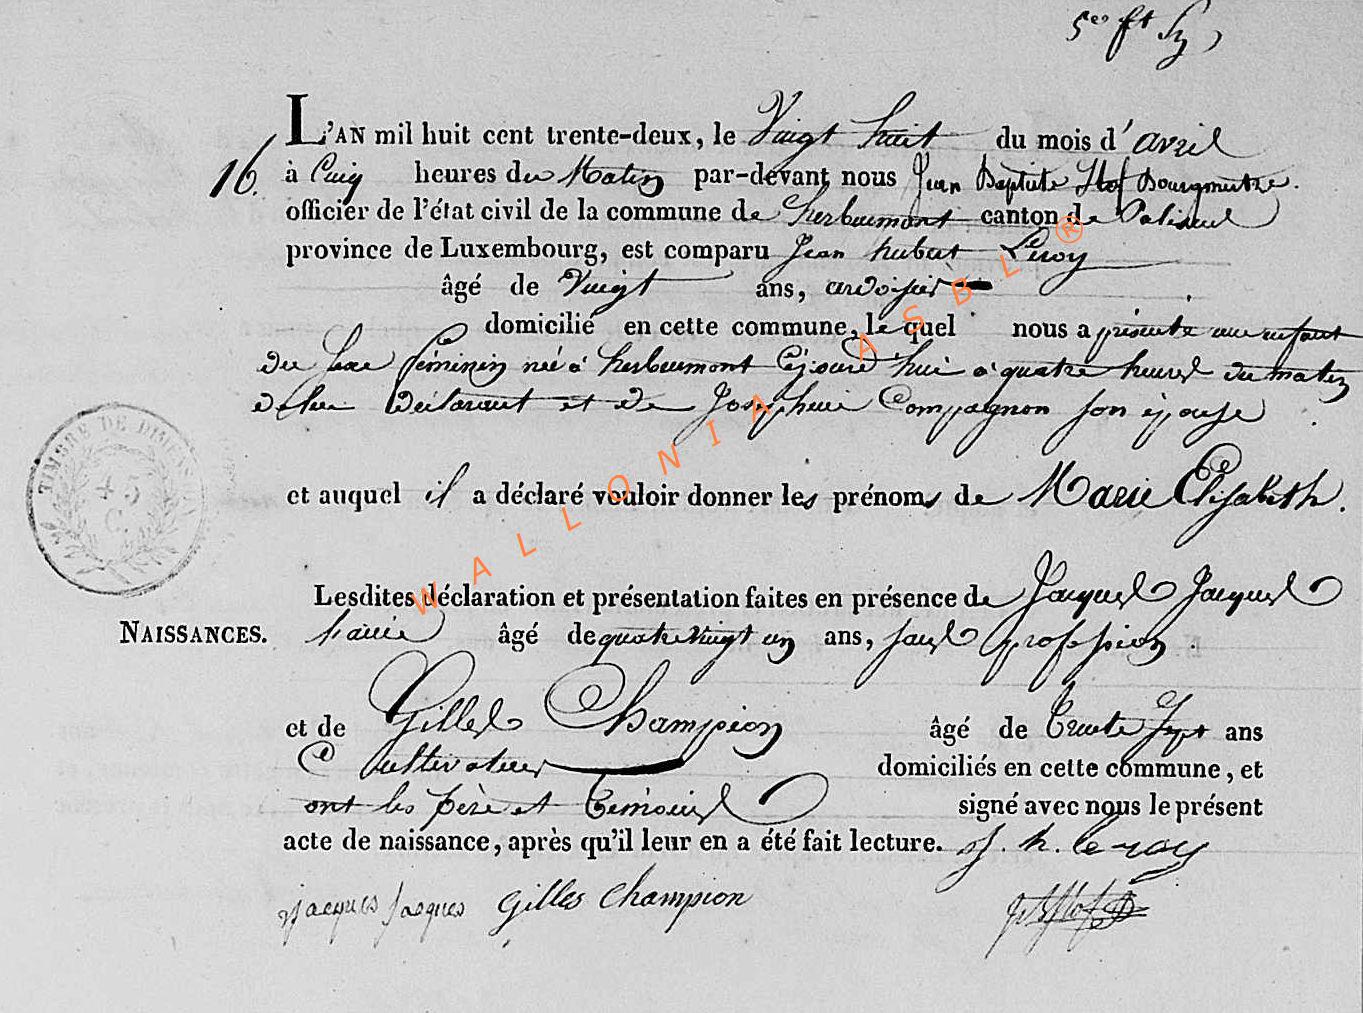 5es ft
L'AN mil huit cent trente-deux, le Vingt huit du mois d'avril
16. à Cinq heures du Matin par-devant nous Jean Baptiste Hof Bourgmestre.
officier de l'état civil de la commune de herbeumont canton de Paliseul
province de Luxembourg, est comparu Jean hubert Leroy
âgé de Vingt ans, ardoisier
domicilié en cette commune, le quel nous a présenté un enfant
du sexe féminin né à herbeumont Cejourd'hui à quatre heures du matin
de lui Déclarant et de Josephine Compagnon son épouse
TIMBRE DE DIMENSION
45
C.
et auquel il a déclaré vouloir donner les prénoms de Marie Elisabeth.
Lesdites déclaration et présentation faites en présence de Jacques Jacques
NAISSANCES. âgé de quatre vingt un ans, sans profession.
et de Gilles Champion âgé de Trente Sept ans
Cultivateur domiciliés en cette commune, et
ont les père et Témoins signé avec nous le présent
acte de naissance, après qu'il leur en a été fait lecture. J. h. leroy
jacques jacques Gilles Champion JB Hof
WALLONIA ASBL ®